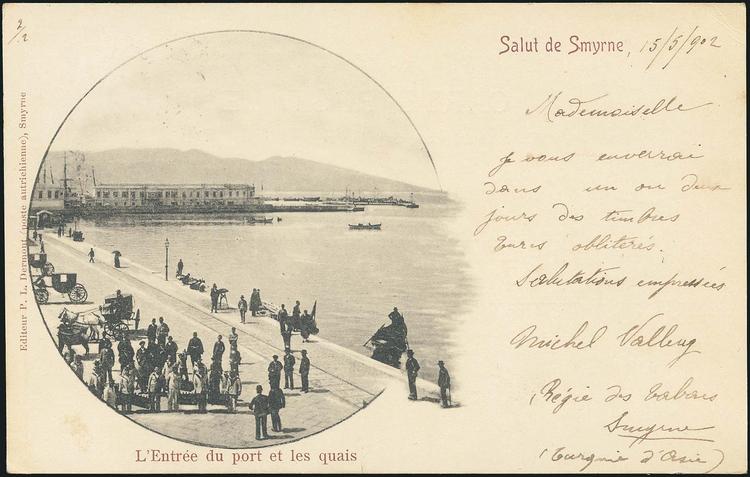 2/2
Salut de Smyrne, 15/5/902
Mademoiselle
Je vous enverrai
dans un ou deux
jours des timbres
turcs oblitérés.
Salutations empressées
Michel
(Régie des tabacs
Smyrne
(Turquie d'Asie)
Editeur P. L. Dermont (poste autrichienne), Smyrne
L'Entrée du port et les quais